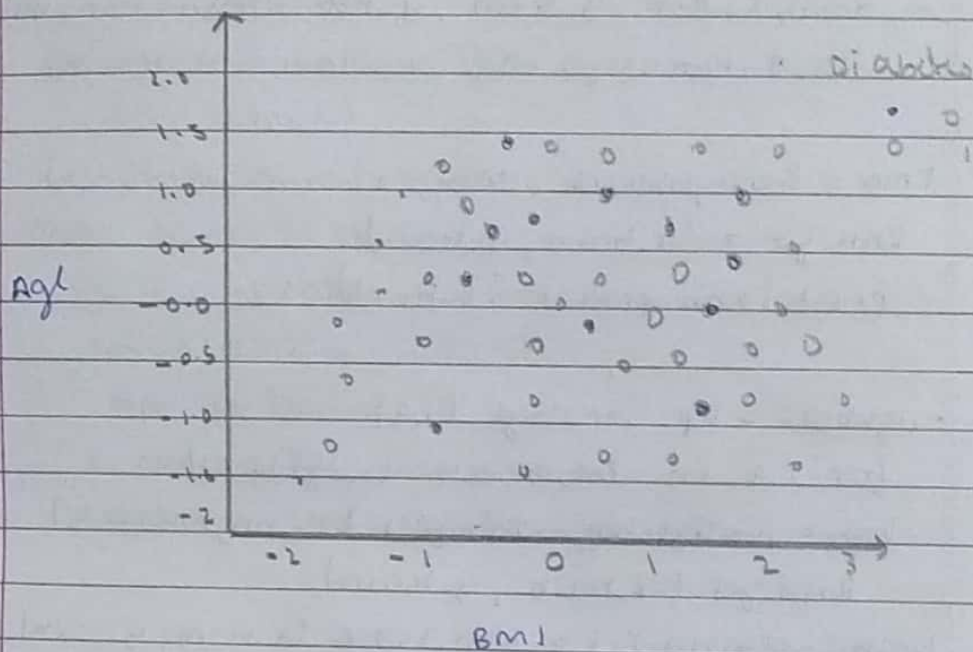 2.0
Diabetes
1.5
1.0
0.5
Agl
-0.0
-0.5
-1.0
-1.5
-2
-2 -1 0 1 2 3
BMI